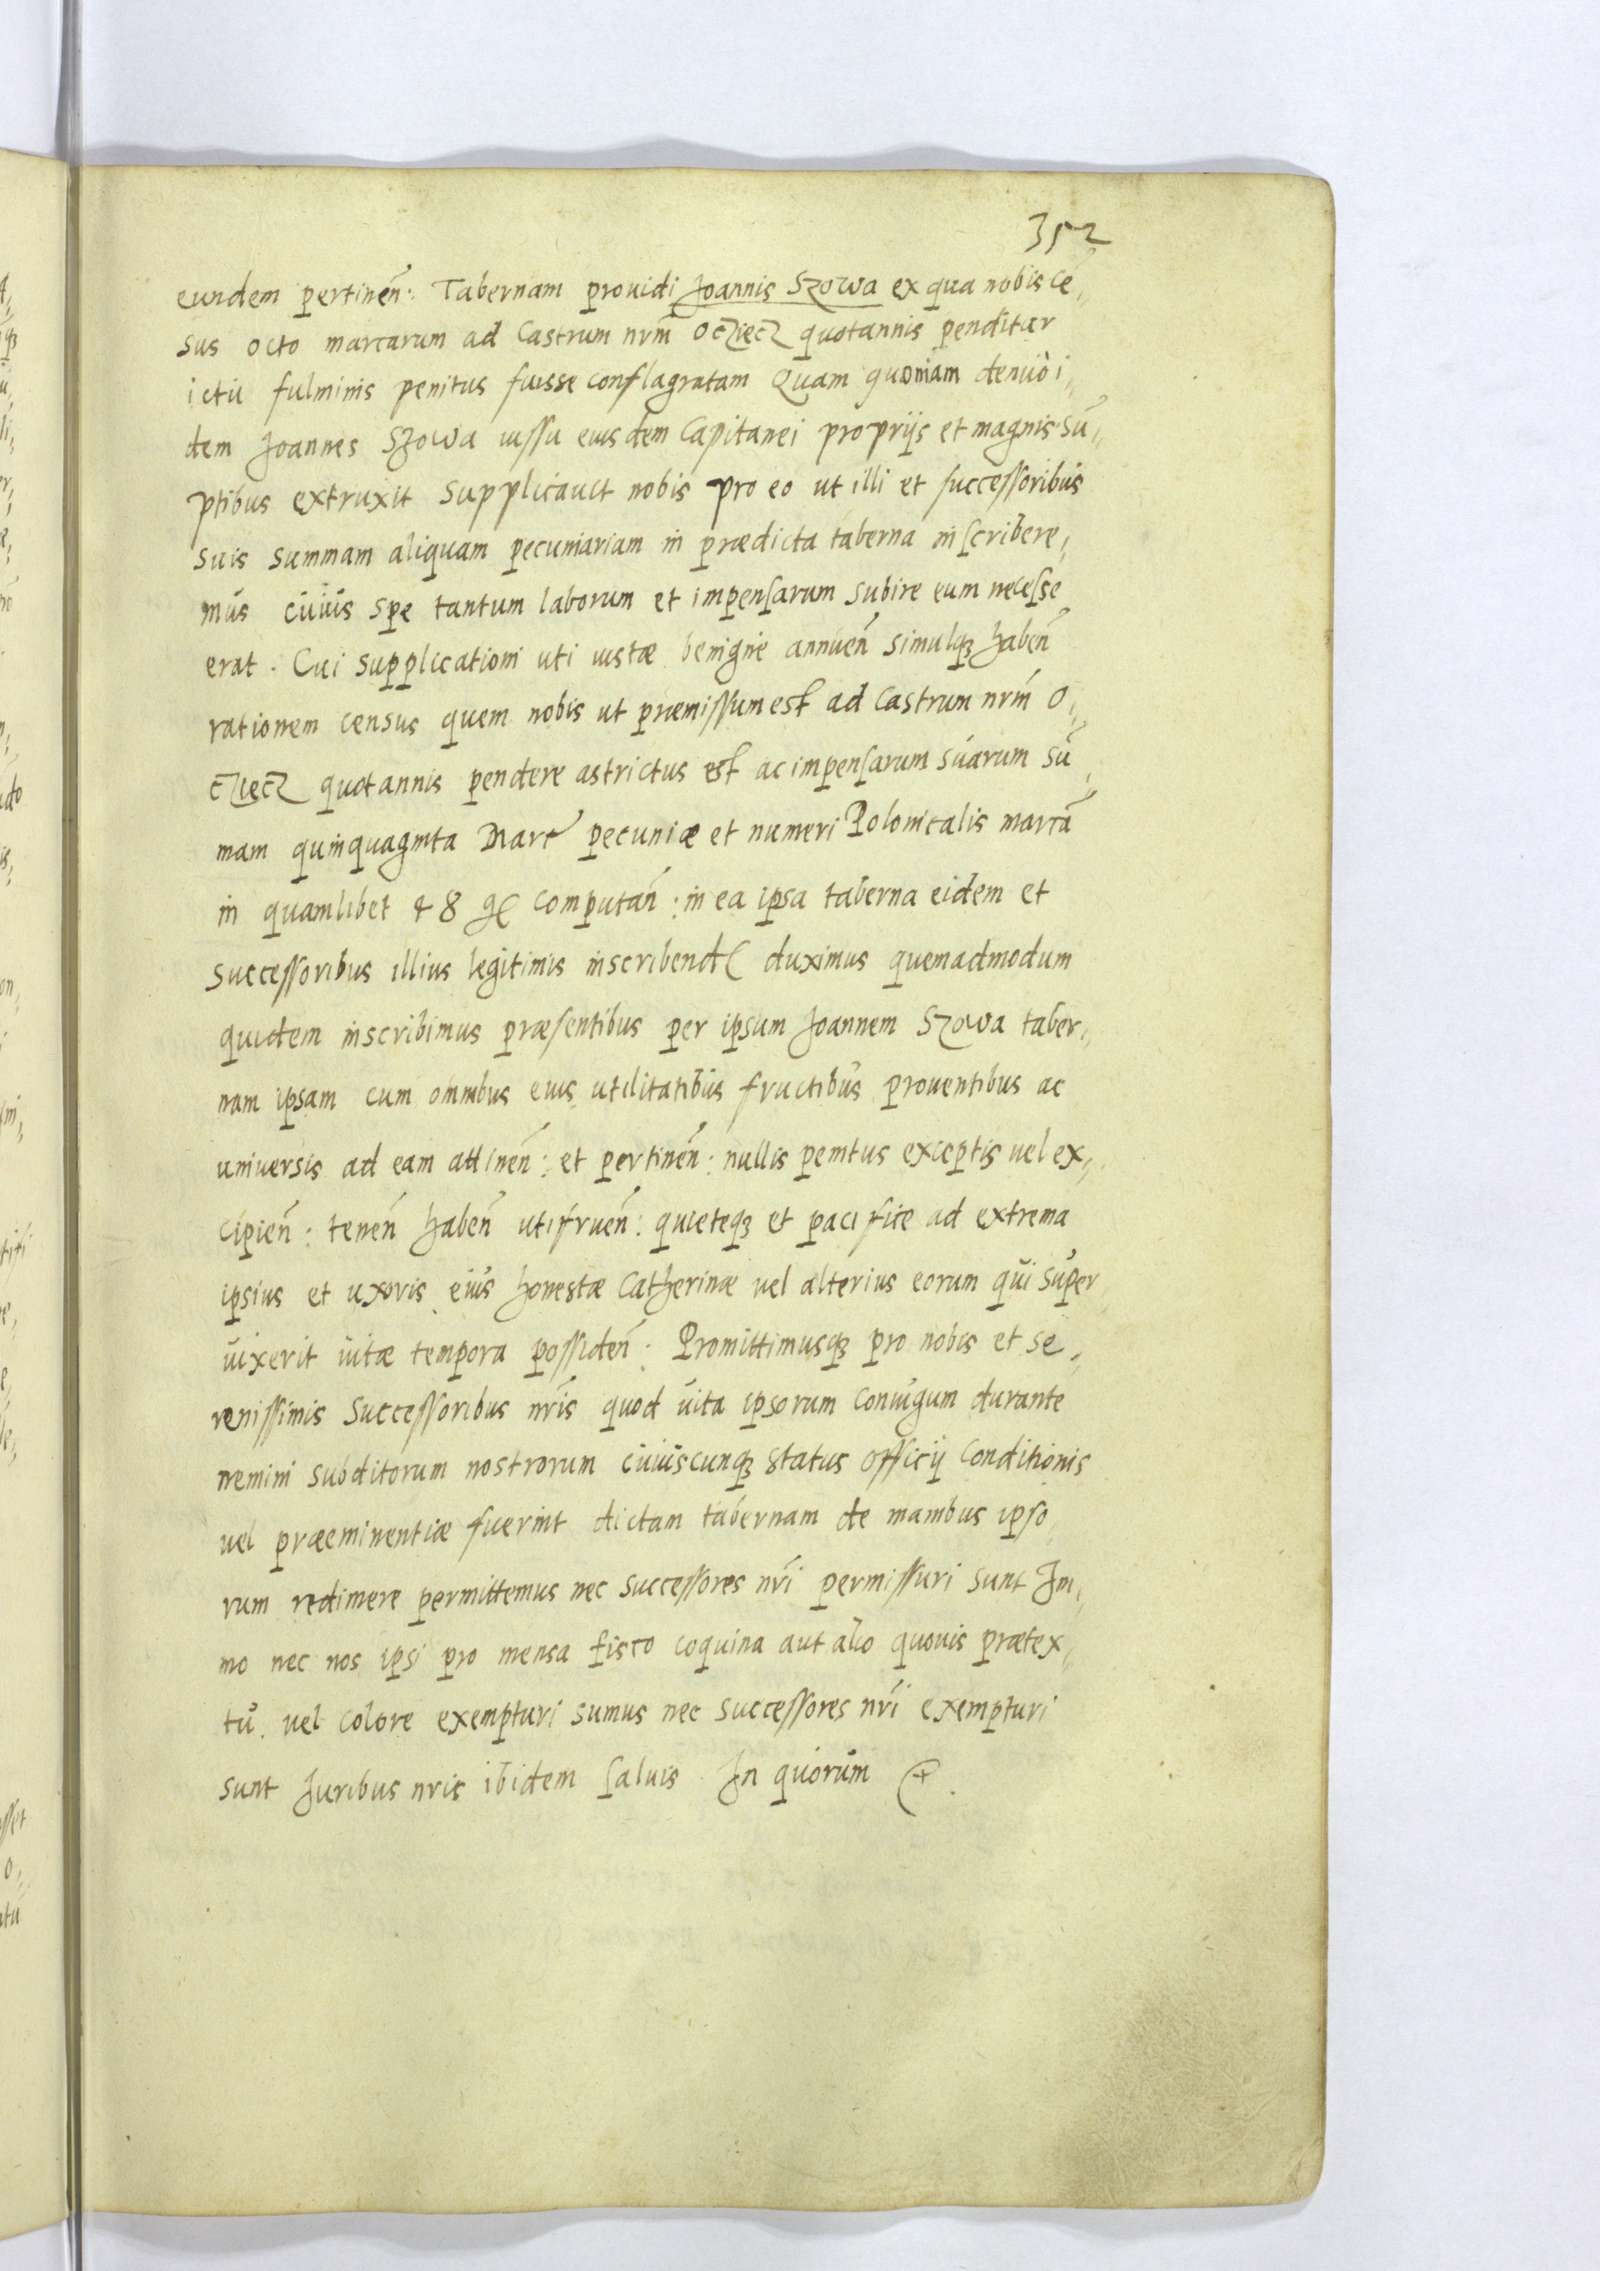 352
eundem pertineñ: Tabernam prouidi Joannis Szowa ex qua nobis cē,,
sus octo marcarum ad Castrum nrm̃ Ocziecz quotannis penditur
ictu fulminis penitus fuisse conflagratam Quam quoniam denuò i,,
dem Joannes Szowa iussu eiusdem Capitanei proprijs et magnis sũ,,
ptibus extruxit supplicauit nobis pro eo ut illi et successoribus
suis summam aliquam pecuniariam in prædicta taberna inscribere,,
mus cuius spe tantum laborum et impensarum subire eum necesse
erat. Cui supplicationi uti iustæ benigne annueñ simulqꝫ habeñ
rationem census quem nobis ut præmissum est ad Castrum nrm̃ O,,
cziecz quotannis pendere astrictus est ac impensarum suarum sũ,,
mam quinquaginta Marc pecuniæ et numeri Polonicalis marcã
in quamlibet 48 gͬ computañ: in ea ipsa taberna eidem et
successoribus illius legitimis inscribend duximus quemadmodum
quidem inscribimus præsentibus per ipsum Joannem Szowa taber,,
nam ipsam cum omnibus eius utilitatibus fructibus prouentibus ac
uniuersis ad eam attineñ: et pertineñ: nullis penitus exceptis uel ex,,
cipieñ: teneñ habeñ utifrueñ: quieteqꝫ et pacifice ad extrema
ipsius et uxoris eius honestæ Catherinæ uel alterius eorum qui super,,
uixerit uitæ tempora possideñ: Promittimusqꝫ pro nobis et se,,
renissimis Successoribus nris̃ quod uita ipsorum coniugum durante
nemini subditorum nostrorum cuiuscunqꝫ status officij conditionis
uel præeminentiæ fuerint dictam tabernam de manibus ipso,,
rum redimere permittemus nec successores nrĩ permissuri sunt Im,,
mo nec nos ipsi pro mensa fisco coquina aut alio quouis prætex,,
tu uel colore exempturi sumus nec successores nrĩ exempturi
sunt Juribus nris ibidem saluis In quorum